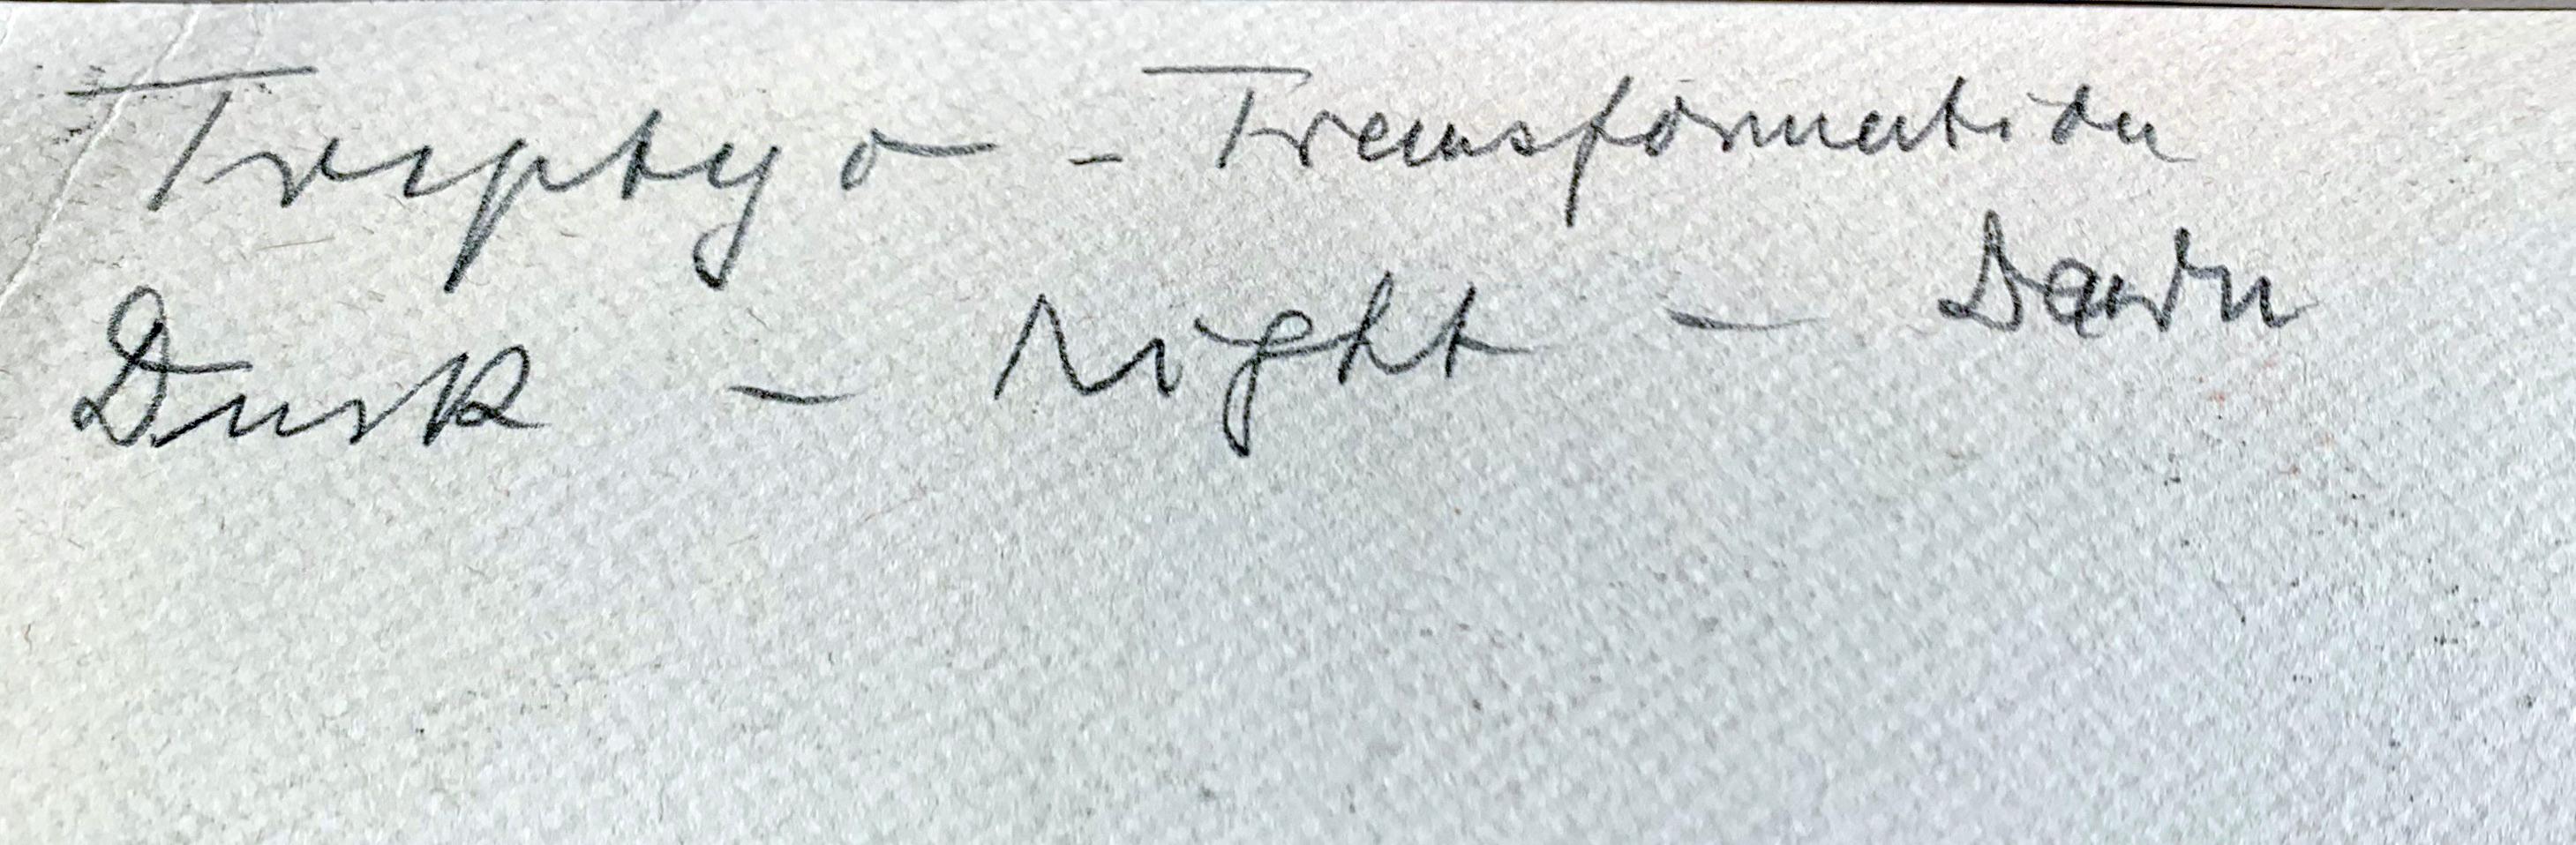 Triptyo - Transformation
Dusk - Night - Dawn